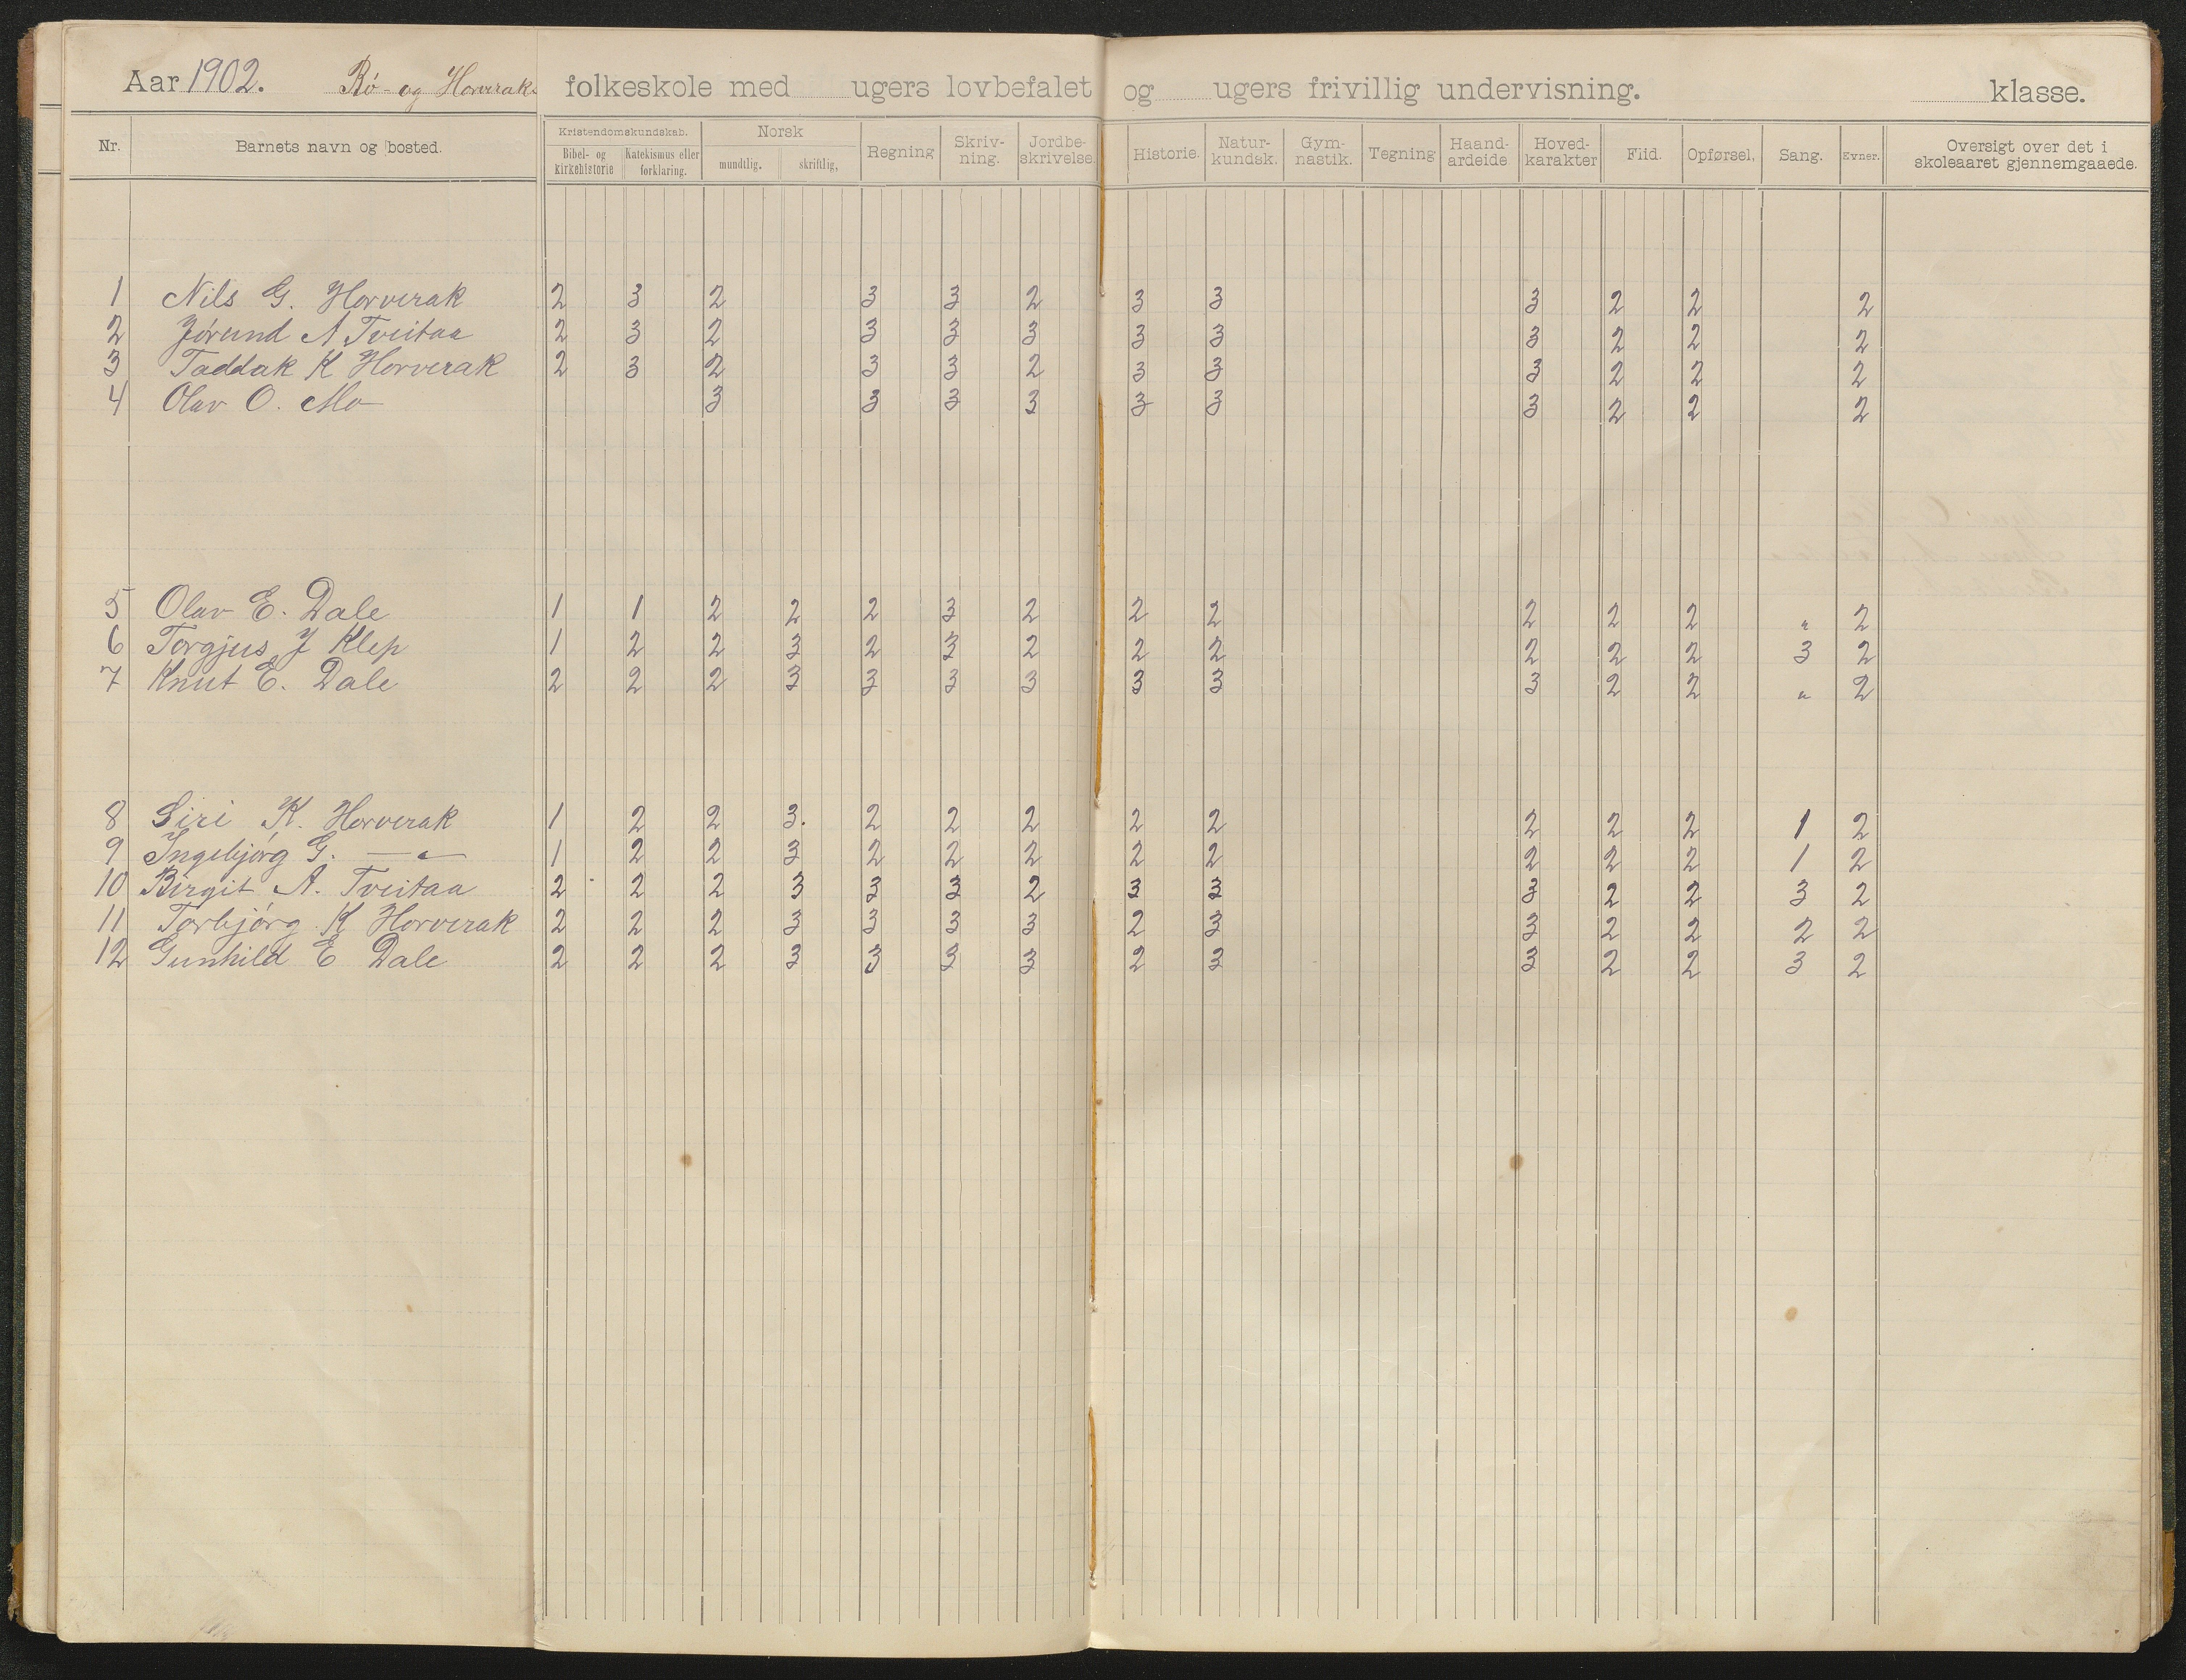 Aar 1902. Rø- og Horveraks folkeskole med ugers lovbefalet og ugers frivillig undervisning. klasse.
Nr. Barnets navn og bosted. Kristendomskundskab. Bibel- og kirkehistorie Katekismus eller forklaring. Norsk mundtlig. skriftlig, Regning Skriv-ning. Jordbe-skrivelse. Historie. Natur-kundsk. Gym-nastik. Tegning Haand-arbeide Hoved-karakter Flid. Opførsel, Sang. Evner. Oversigt over det i skoleaaret gjennemgaaede.
1 Nils G. Horverak 2 3 2 3 3 2 3 3 3 2 2 2
2 Jørund A Tveitaa 2 3 2 3 3 3 3 3 3 2 2 2
3 Taddak K Horverak 2 3 2 3 3 2 3 3 3 2 2 2
4 Olav O. Mo 3 3 3 3 3 3 3 2 2 2
5 Olav E. Dale 1 1 2 2 2 3 2 2 2 2 2 2 " 2
6 Torgjus J Klep 1 2 2 3 2 3 2 2 2 2 2 2 3 2
7 Knut E. Dale 2 2 2 3 3 3 3 3 3 3 2 2 " 2
8 Siri K. Horverak 1 2 2 3. 2 2 2 2 2 2 2 2 1 2
9 Ingebjørg G. — " — 1 2 2 3 2 2 2 2 2 2 2 2 1 2
10 Birgit A. Tveitaa 2 2 2 3 3 3 2 3 3 3 2 2 3 2
11 Torbjørg K Horverak 2 2 2 3 3 3 3 2 3 3 2 2 2 2
12 Gunhild E Dale 2 2 2 3 3 3 3 2 3 3 2 2 3 2